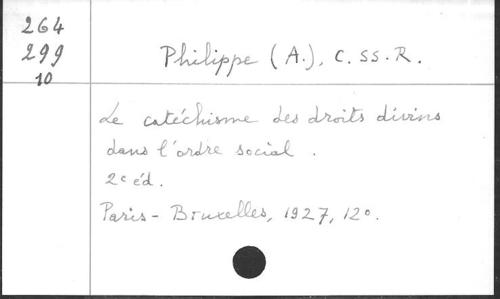 264
299
10
Philippe (A.), C. SS. R.
Le catéchisme des droits divins
dans l'ordre social.
2e éd.
Paris - Bruxelles, 1927, 12°.